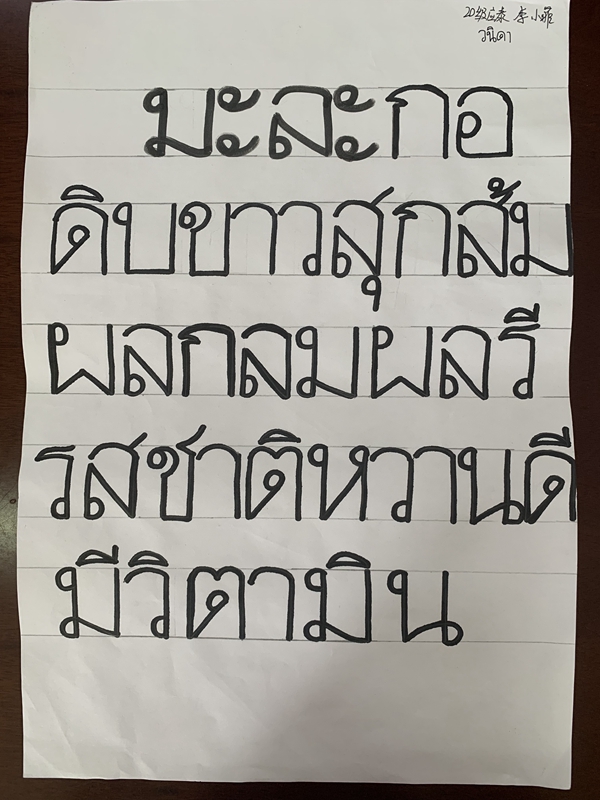 20级应泰 李小菲
วนิดา
มะละกอ
ดิบขาวสุกส้ม
ผลกลมผลรี
รสชาติหวานดี
มีวิตามิน